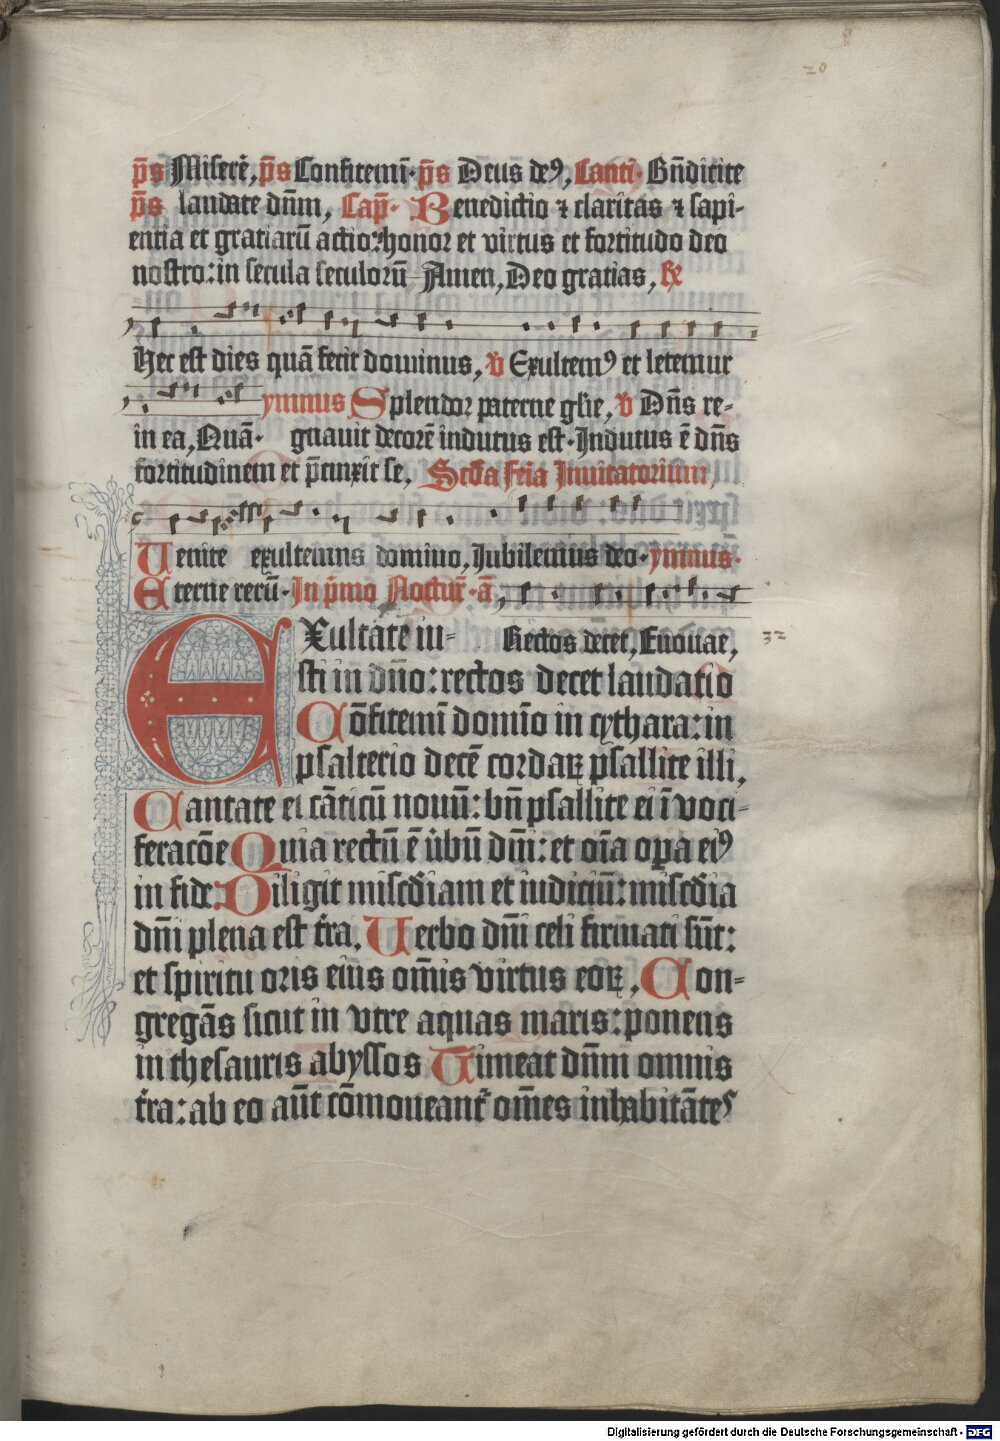 20
p̄s Miserē, p̄s Confitemī· p̄s Deus deꝰ, Canti· Bn̄dicite
p̄s laudate dn̄m, Cap̄· Benedictio ⁊ claritas ⁊ sapi-
entia et gratiarū actio: honor et virtus et fortitudo deo
nostro: in secula seculorū Amen, Deo gratias, ℟
Hec est dies quā fecit dominus, v̄ Exultemꝰ et letemur
ymnus Splendor paterne gl̄ie, v̄ Dn̄s re-
in ea, Quā· gnauit decorē indutus est· Indutus ē dn̄s
fortitudinem et p̄cinxit se, Scd̄a feīa Inuitatorium,
Uenite exultemus domino, Jubilemus deo· ymnus·
Eterne rerū· In p̄mo Noctur̄· ā
EXultate iu- Rectos decet, Euouae, 32
sti in dn̄o: rectos decet laudatio
Cōfitemī domīo in cythara: in
psalterio decē cordaꝝ psallite illi,
Cantate ei cāticū nouū: bn̄ psallite ei ī voci-
feracōe Quia rectū ē ūbū dn̄i: et oīa oꝑa eiꝰ
in fide Diligit misc̄diam et iudiciū: misc̄dia
dn̄i plena est t̄ra, Uerbo dn̄i celi firmati sūt:
et spiritu oris eius om̄is virtus eoꝝ, Con-
gregās sicut in vtre aquas maris: ponens
in thesauris abyssos Timeat dn̄m omnis
t̄ra: ab eo aūt cōmoueant᷑ om̄es inhabitātes
Digitalisierung gefördert durch die Deutsche Forschungsgemeinschaft - DFG